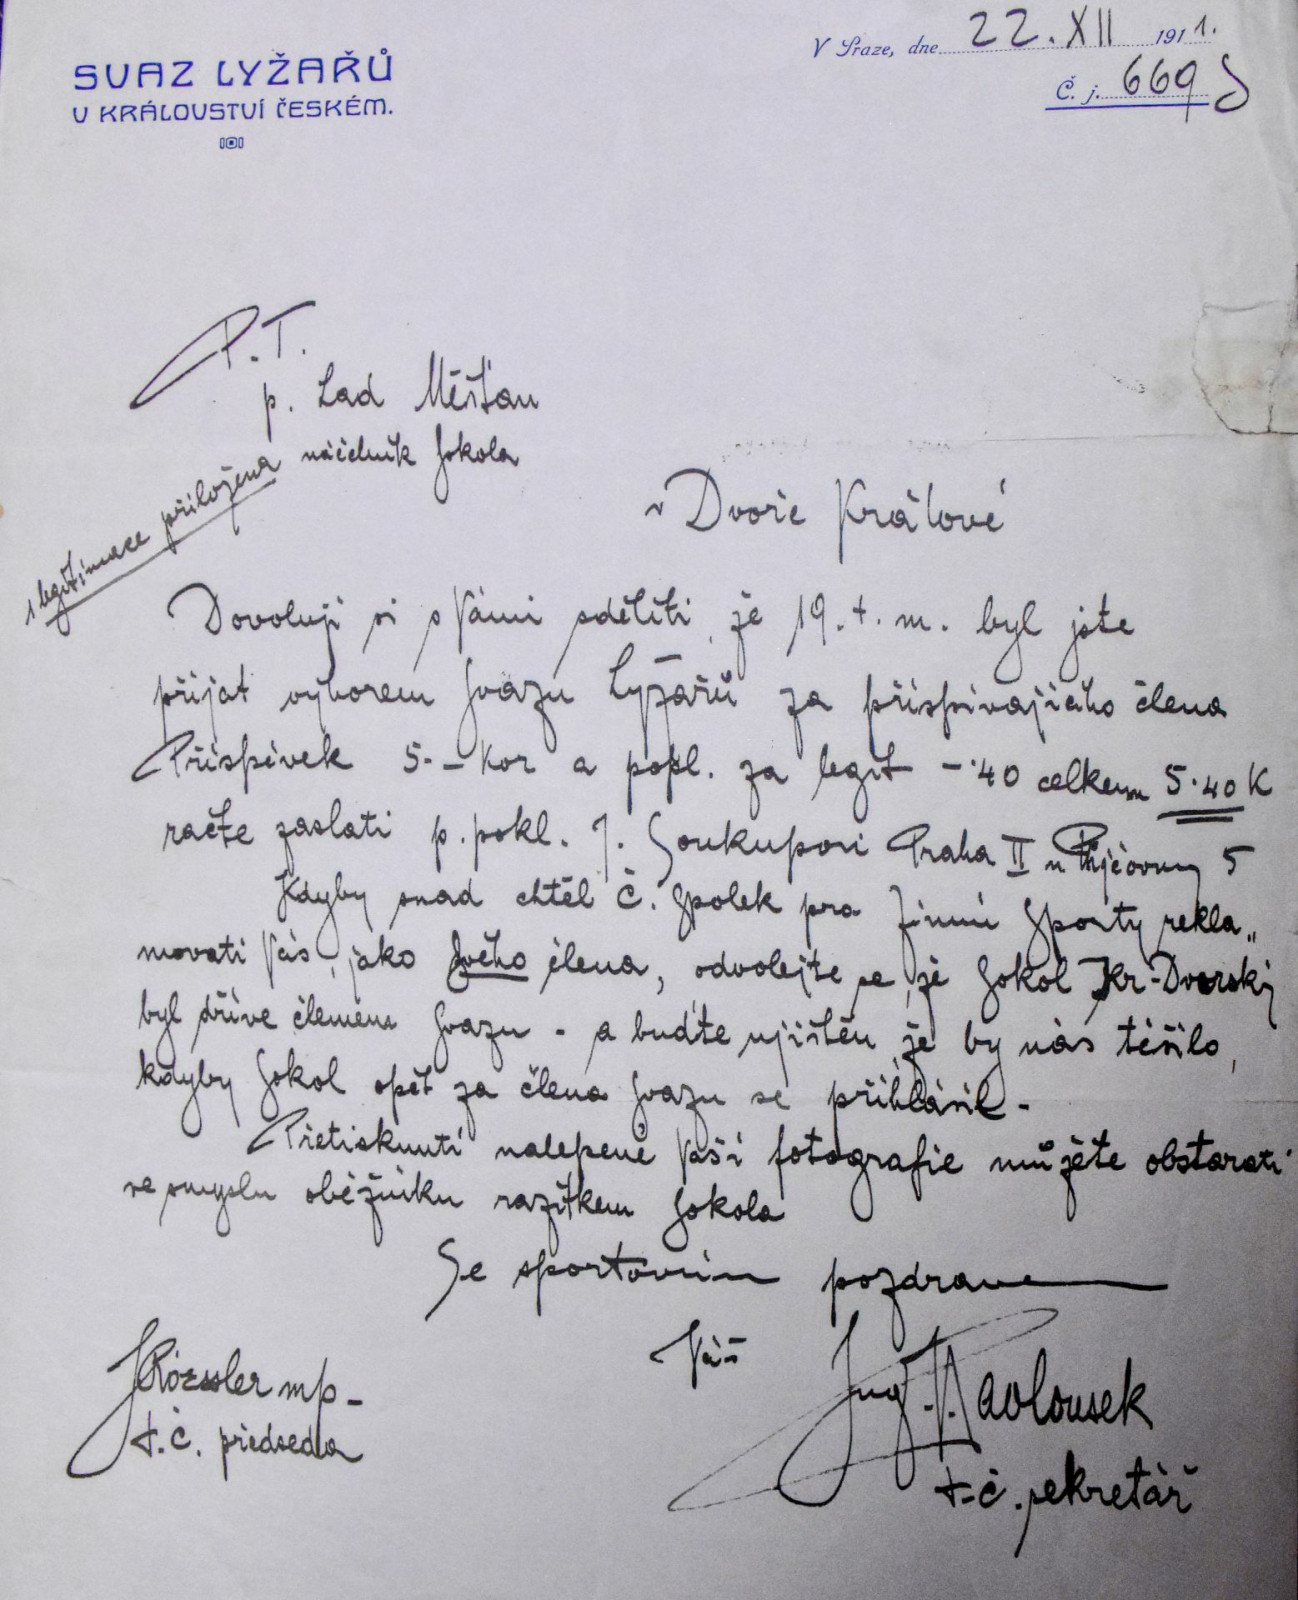 SVAZ LYŽAŘŮ
V KRÁLOVSTVÍ ČESKÉM.
V Praze, dne 22. XII 1911.
Č. j. 669
P. T.
p. Lad Měšťan
náčelník Sokola
1 legitimace přiložena
v Dvoře Králové
Dovoluji si s Vámi sděliti, že 19. t. m. byl jste
přijat výborem Svazu Lyžařů za přispívajícího člena
Příspěvek 5.– kor a popl. za legit –.40 celkem 5.40 K
račte zaslati p. pokl. J. Soukupovi Praha II u Půjčovny 5
Kdyby snad chtěl Č. Spolek pro Zimní Sporty rekla„
movati Vás, jako svého člena, odvolejte se, že Sokol Kr-Dvorský
byl dříve členem Svazu – a buďte ujištěn, že by nás těšilo,
kdyby Sokol opět za člena Svazu se přihlásil –
Přetisknutí nalepené Vaší fotografie můžete obstarati
ve smyslu oběžníku razítkem Sokola
Se sportovním pozdravem
Váš
JRössler mp –
t. č. předseda
Ing. V. Pavlousek
t. č. sekretář